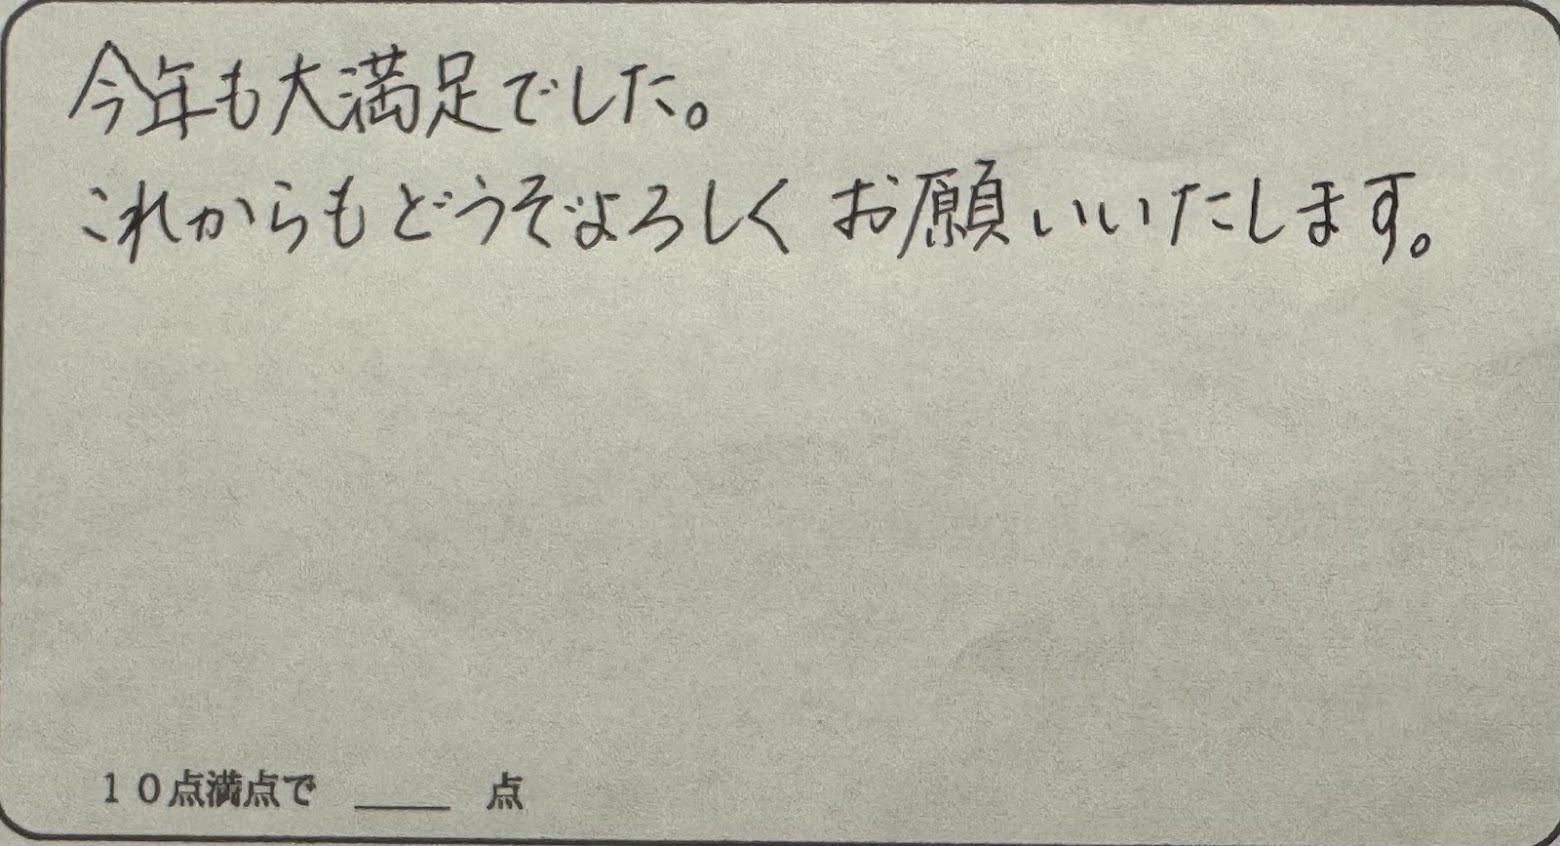 今年も大満足でした。
これからもどうぞよろしくお願いいたします。
１０点満点で ____ 点